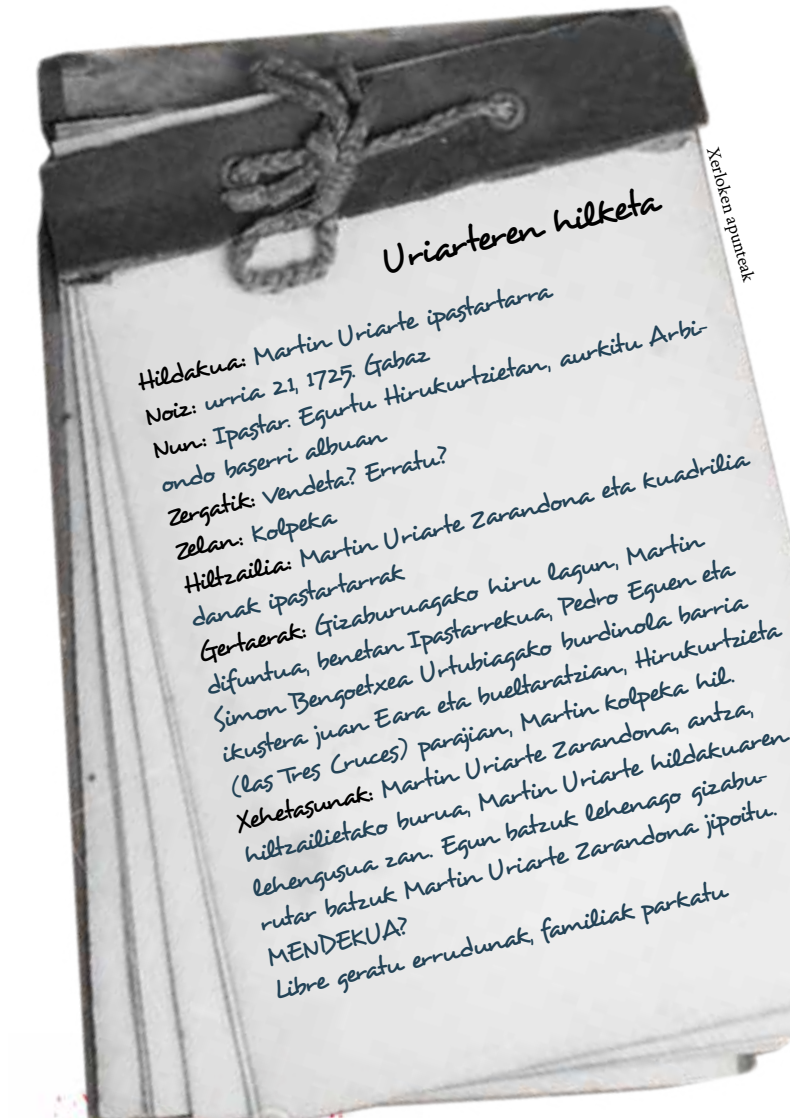 Xerloken apunteak
Uriarteren hilketa
Hildakua: Martin Uriarte ipastartarra
Noiz: urria 21, 1725. Gabaz
Nun: Ipastar. Egurtu Hirukurtzietan, aurkitu Arbi-
ondo baserri albuan
Zergatik: Vendeta? Erratu?
Zelan: Kolpeka
Hiltzailia: Martin Uriarte Zarandona eta kuadrilia
danak ipastartarrak
Gertaerak: Gizaburuagako hiru lagun, Martin
difuntua, benetan Ipastarrekua, Pedro Eguen eta
Simon Bengoetxea Urtubiagako burdinola barria
ikustera juan Eara eta bueltaratzian, Hirukurtzieta
(las Tres Cruces) parajian, Martin kolpeka hil.
Xehetasunak: Martin Uriarte Zarandona, antza,
hiltzailietako burua, Martin Uriarte hildakuaren
lehengusua zan. Egun batzuk lehenago gizabu-
rutar batzuk Martin Uriarte Zarandona jipoitu.
MENDEKUA?
Libre geratu errudunak, familiak parkatu